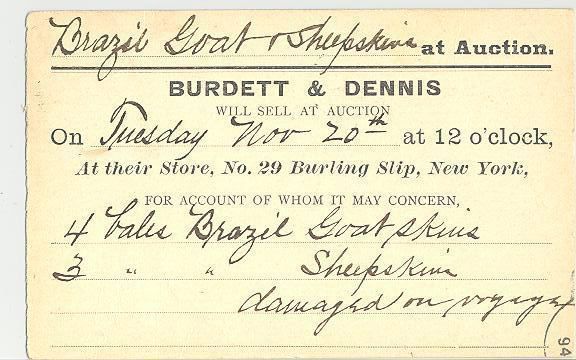 Brazil Goat & Sheepskins at Auction.
BURDETT & DENNIS
WILL SELL AT AUCTION
On Tuesday Nov 20th at 12 o'clock,
At their Store, No. 29 Burling Slip, New York,
FOR ACCOUNT OF WHOM IT MAY CONCERN,
4 bales Brazil Goatskins
3 " " Sheepskins
damaged on voyage
94